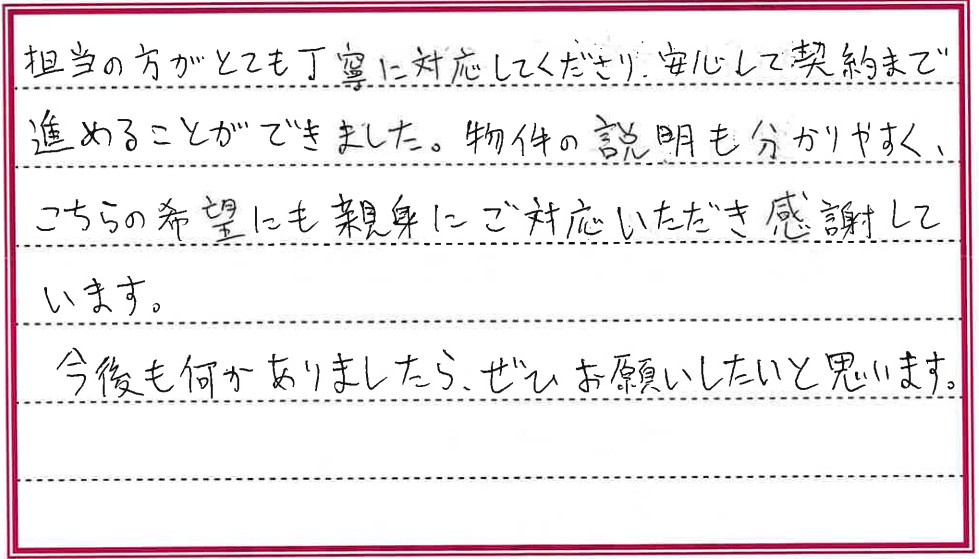 担当の方がとても丁寧に対応してくださり、安心して契約まで
進めることができました。物件の説明も分かりやすく、
こちらの希望にも親身にご対応いただき感謝して
います。
今後も何かありましたら、ぜひお願いしたいと思います。